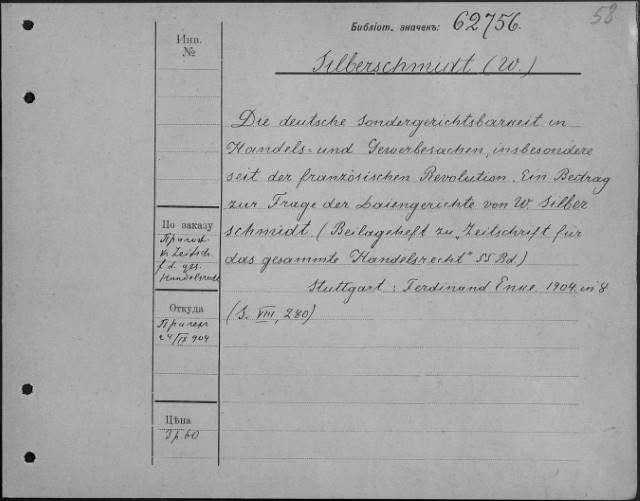 58
Библіот. значекъ: 62756.
Инв.
№
Silberschmidt (W.)
Die deutsche Sondergerichtsbarkeit in
Handels= und Gewerbesachen, insbesondere
seit der französischen Revolution. Ein Beitrag
zur Frage der Laiengerichte von W. Silber
schmidt. (Beilageheft zu „Zeitschrift für
das gesammte Handelsrecht" 55 Bd.)
Stuttgart: Ferdinand Enke. 1904. in 8
(S. VIII, 280)
По заказу
f. d. ges.
Handelsrecht
Откуда
24/IX 904
Цѣна
3 р. 60